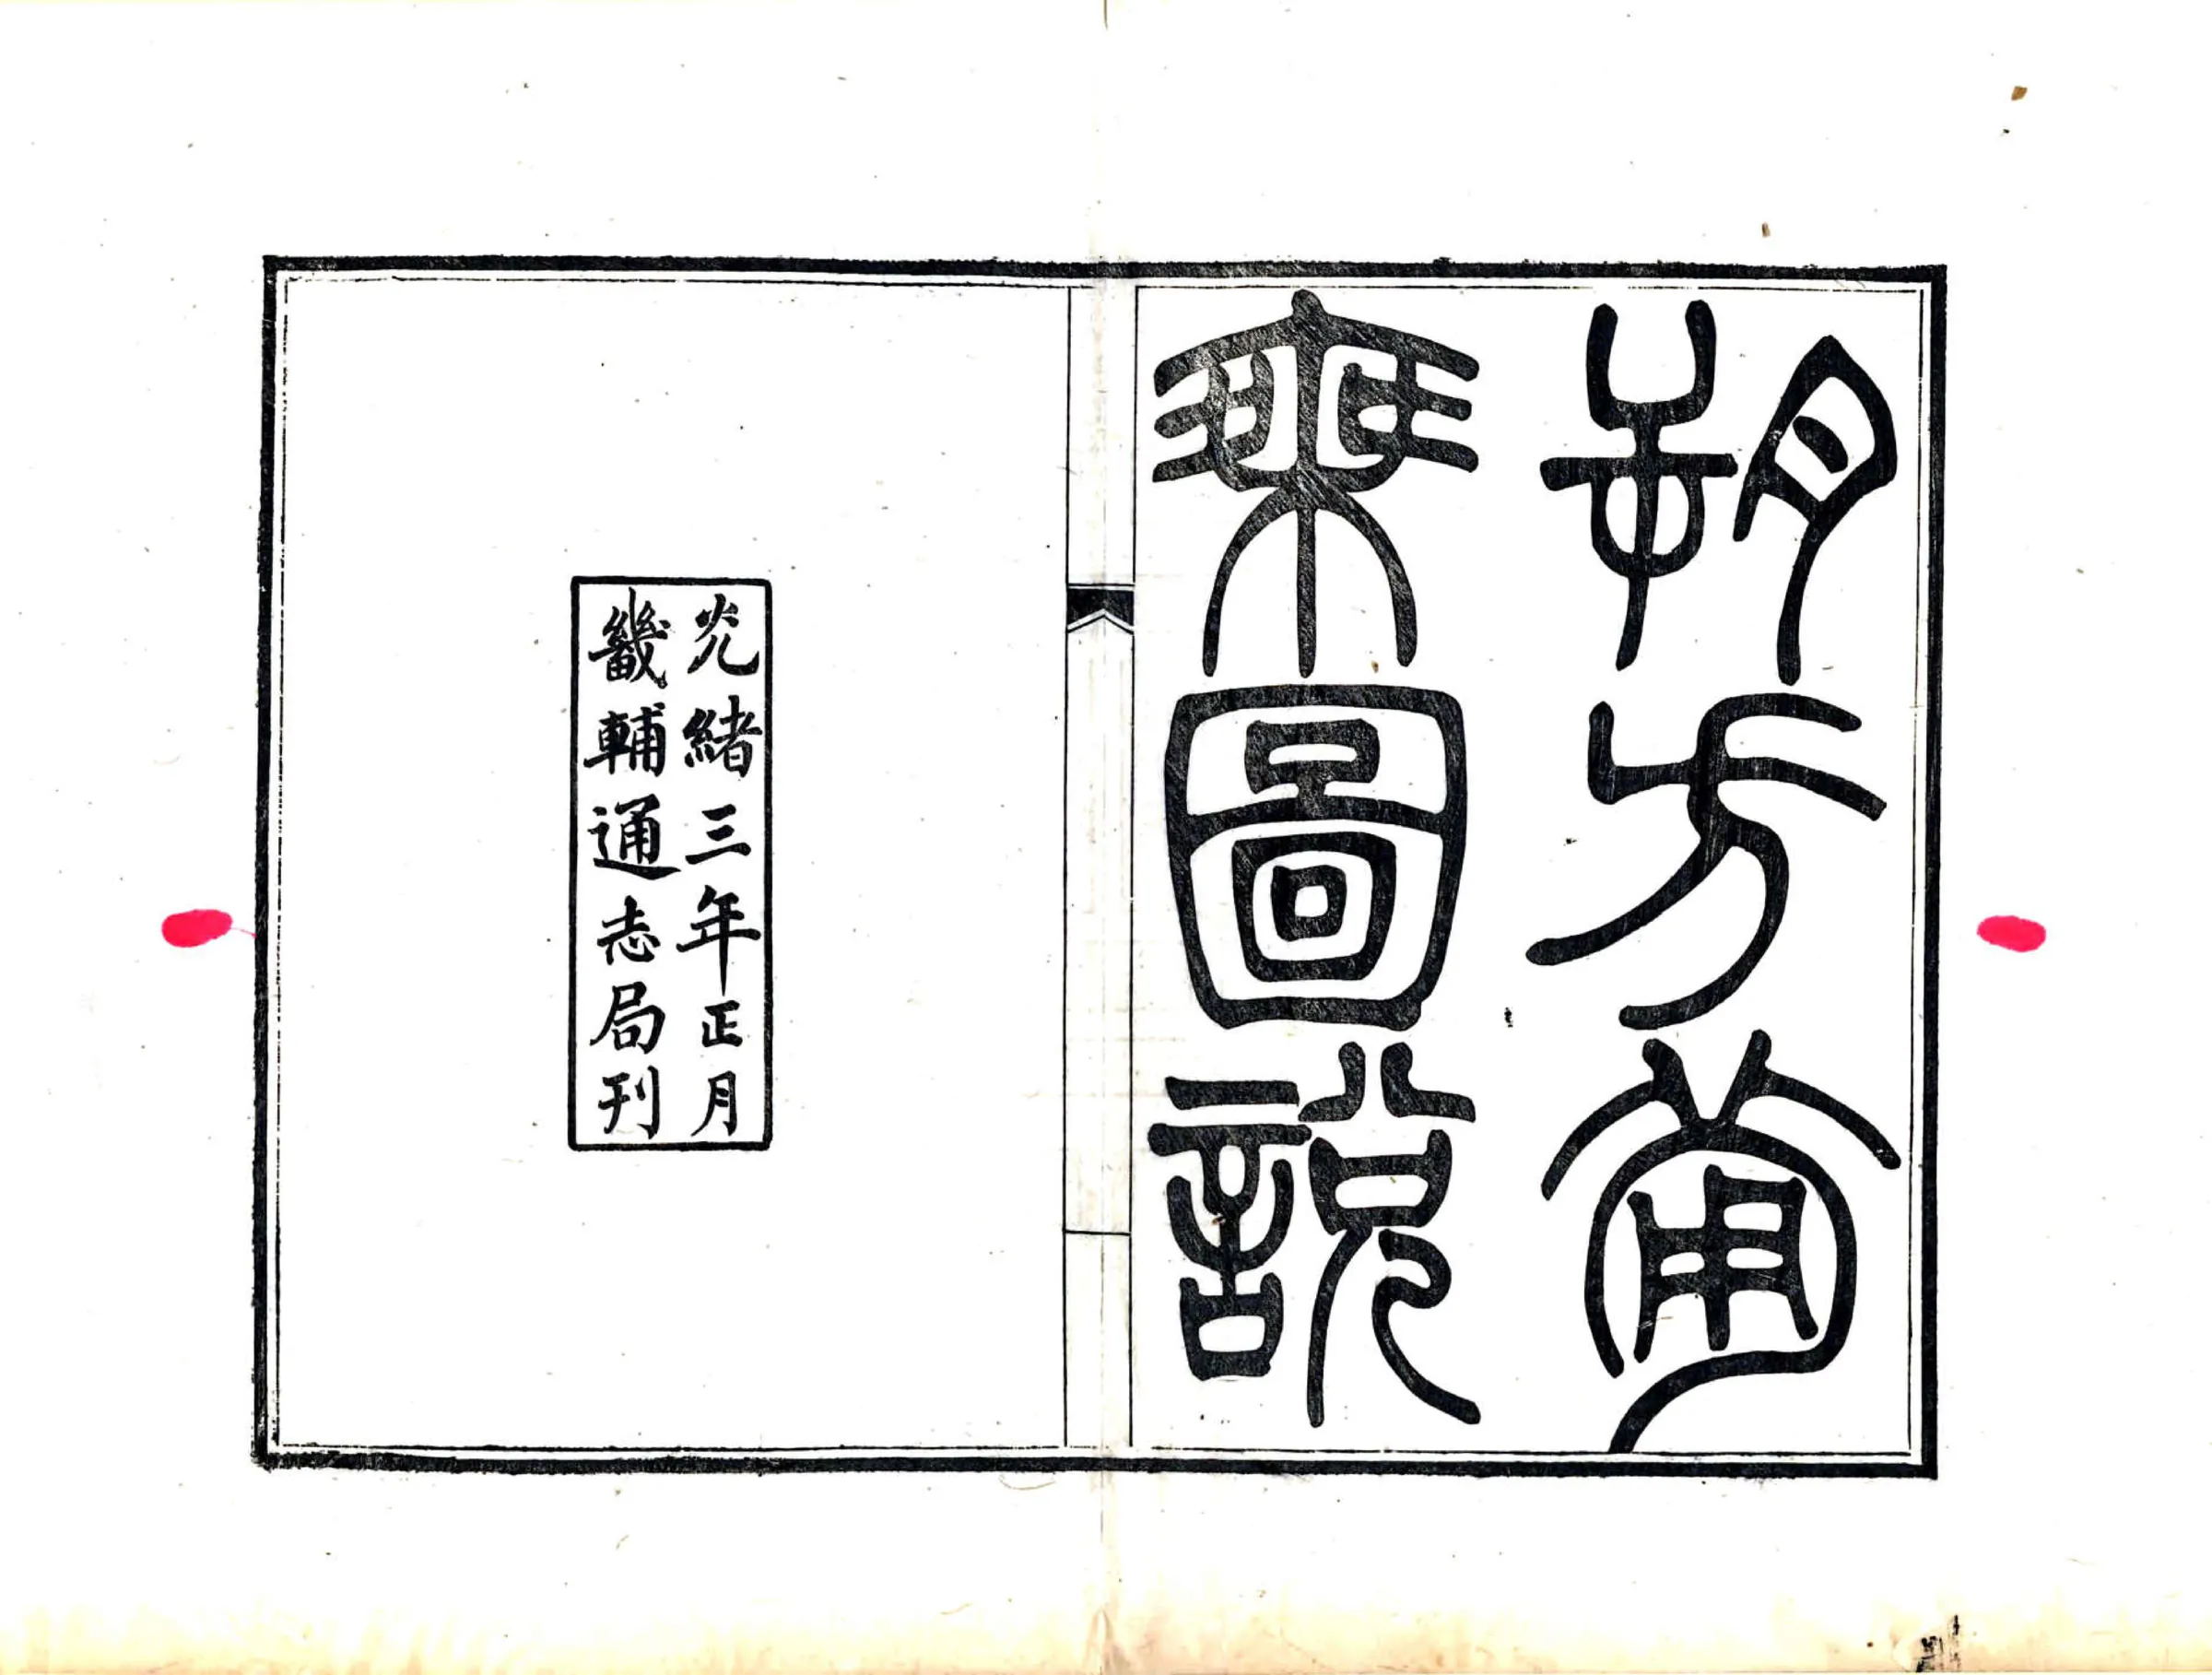 朔方備
乘圖說
光緒三年正月
畿輔通志局刊